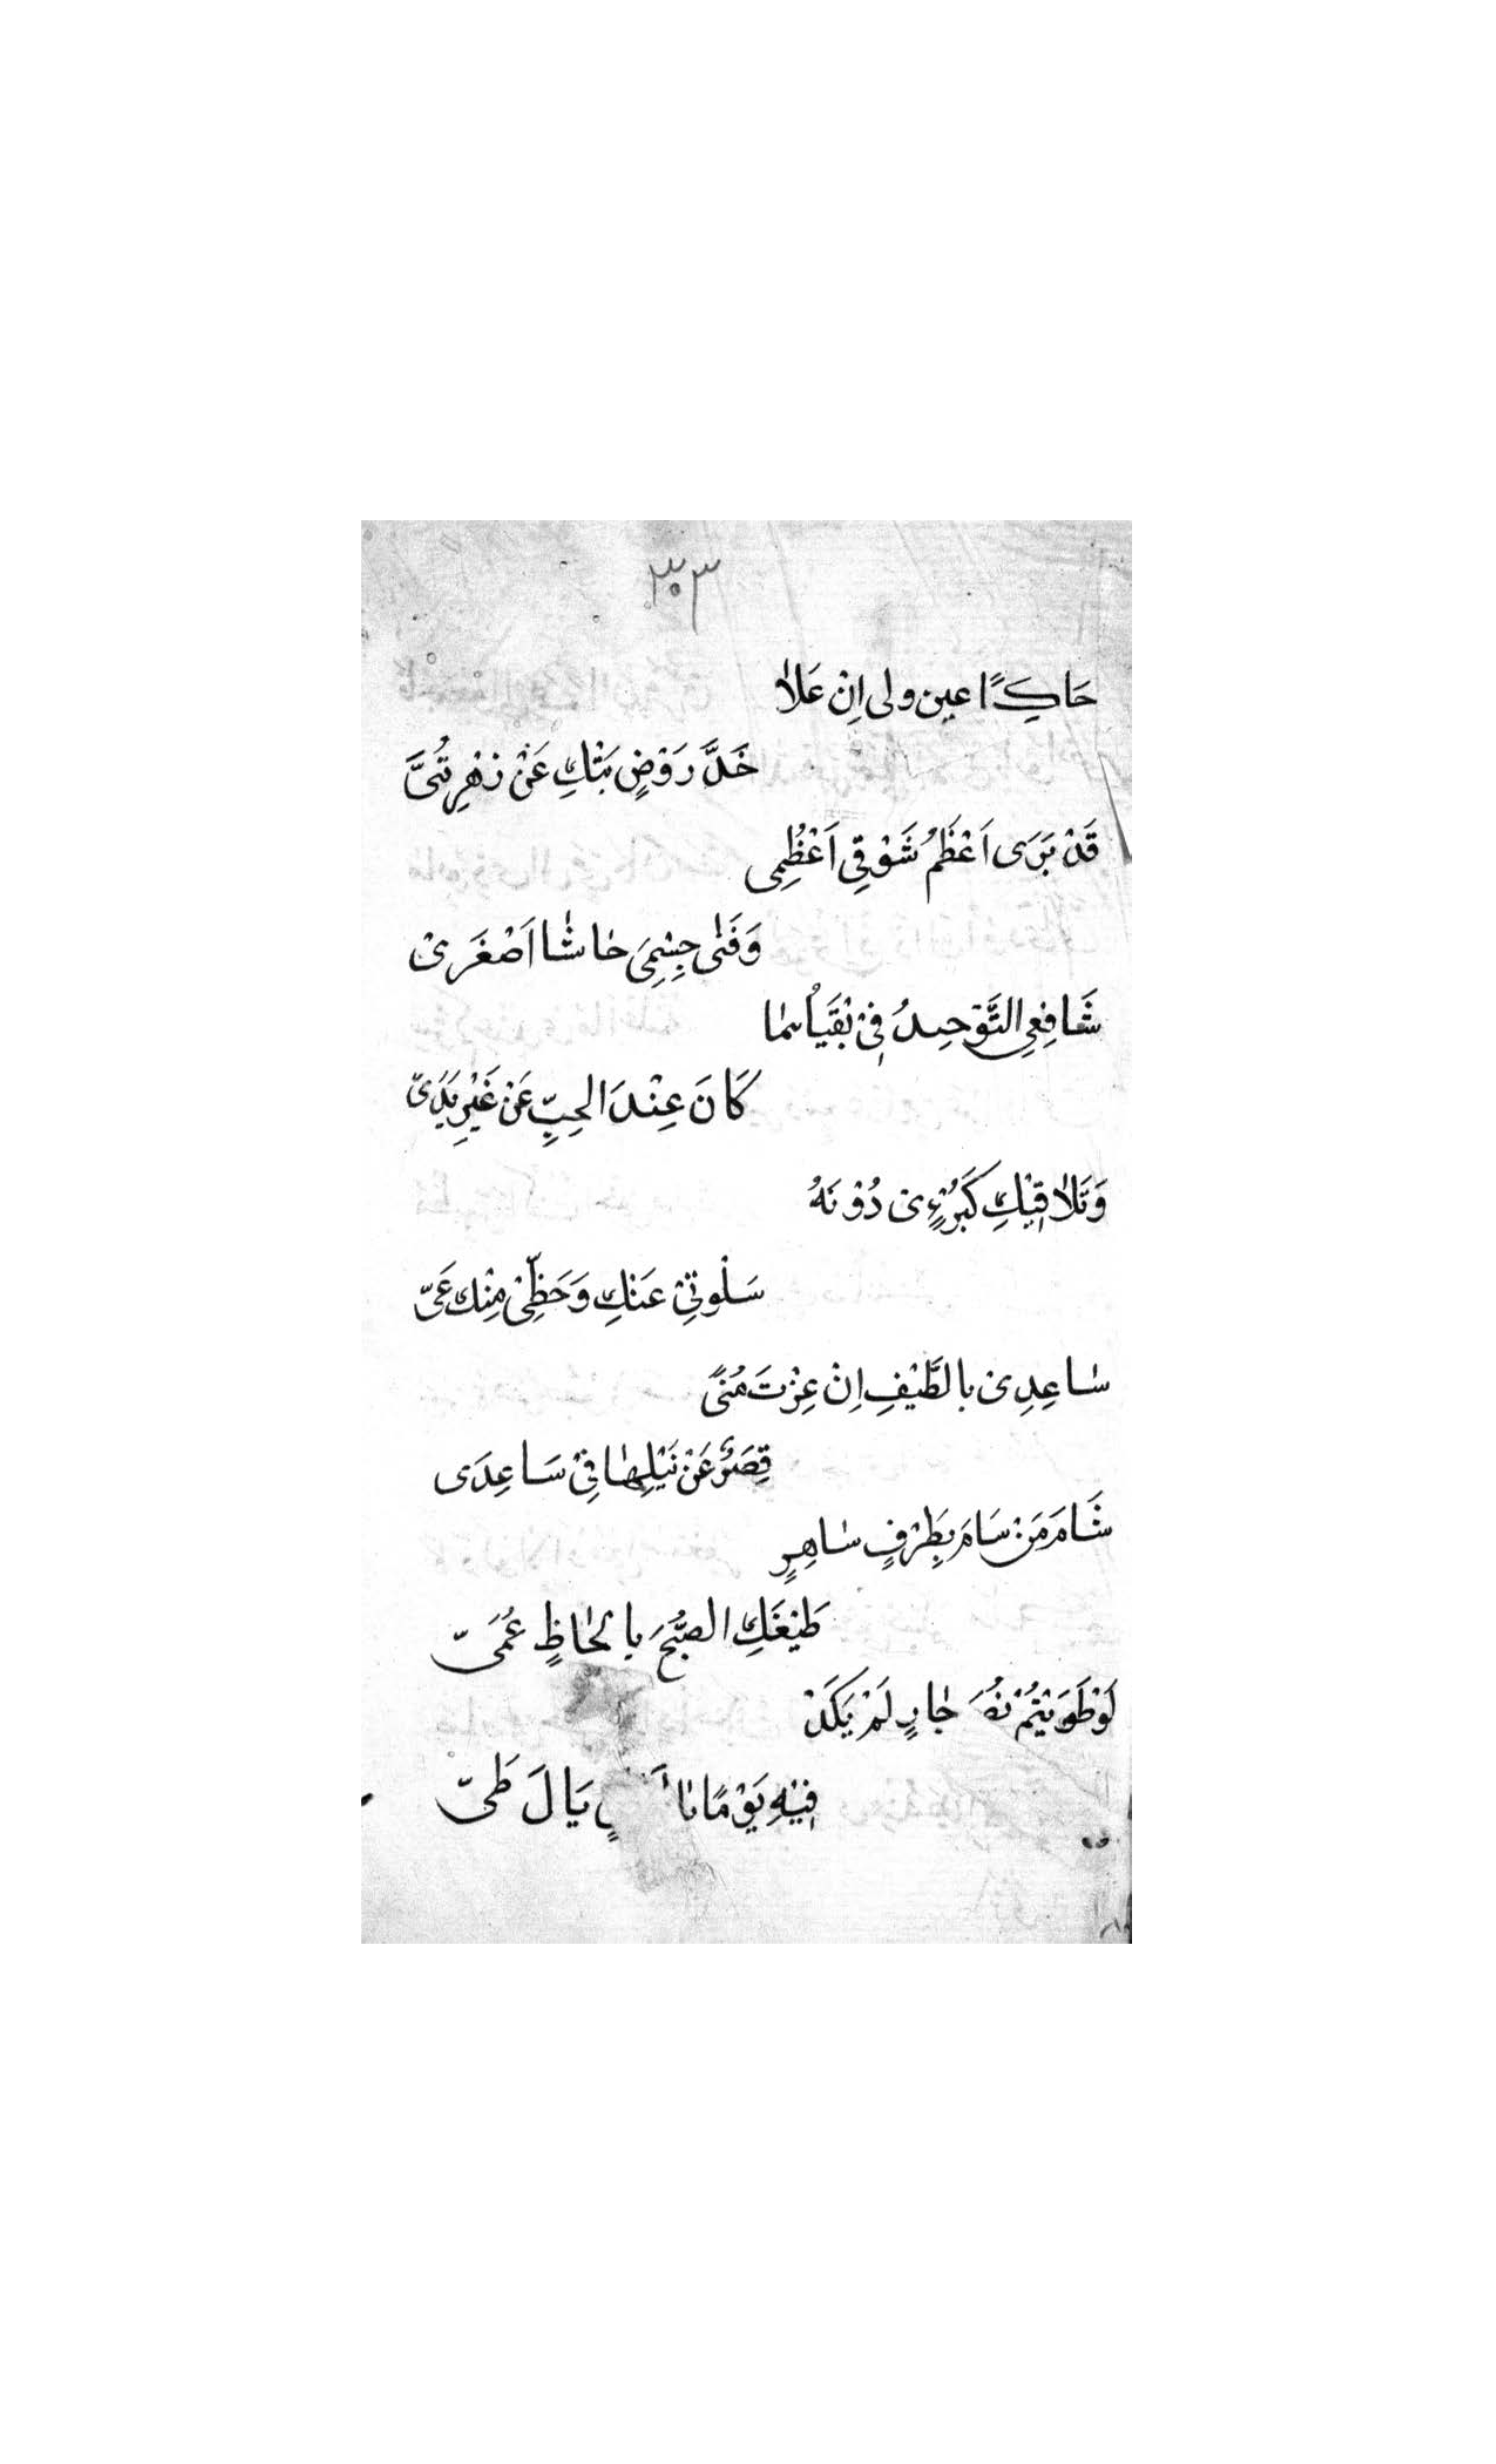 ٣٥٣
حَاكِيًا عين ولى اِنْ عَلَا
خَدَّ رَوْضٍ تَبْكِ عَنْ زَهْرِ تُىَّ
قَدْ بَرَى اَعْظَمُ شَوْقِي اَعْظُمِى
وَفَنٰى جِسْمِىَ حَاشَا اَصْغَرَىْ
شَافِعِي التَّوْحِيدُ فِىْ بُقْيَاهُمَا
كَانَ عِنْدَ الحِبِّ عَنْ غَيْرِ يَدَىّ
وَتَلَافِيْكِ كَبُرْءِى دُوْنَهُ
سَلْوَتِىْ عَنْكِ وَحَظِّىْ مِنْكِ عَىّ
سَاعِدِى بالطَّيْفِ اِنْ عِزَّتَ مُنًى
قِصَرٌ عَنْ نَيْلِهَا فِىْ سَاعِدَى
شَامَ مَنْ سَامَ بِطَرْفٍ سَاهِرٍ
طَيْفَكِ الصُّبْحَ بِالْحَاظٍ عُمَىّ
لَوْ طَوَيْتُمْ نُصْحَ جَارٍ لَمْ يَكَدْ
فِيْهِ يَوْمًا يَالَ طَىّ